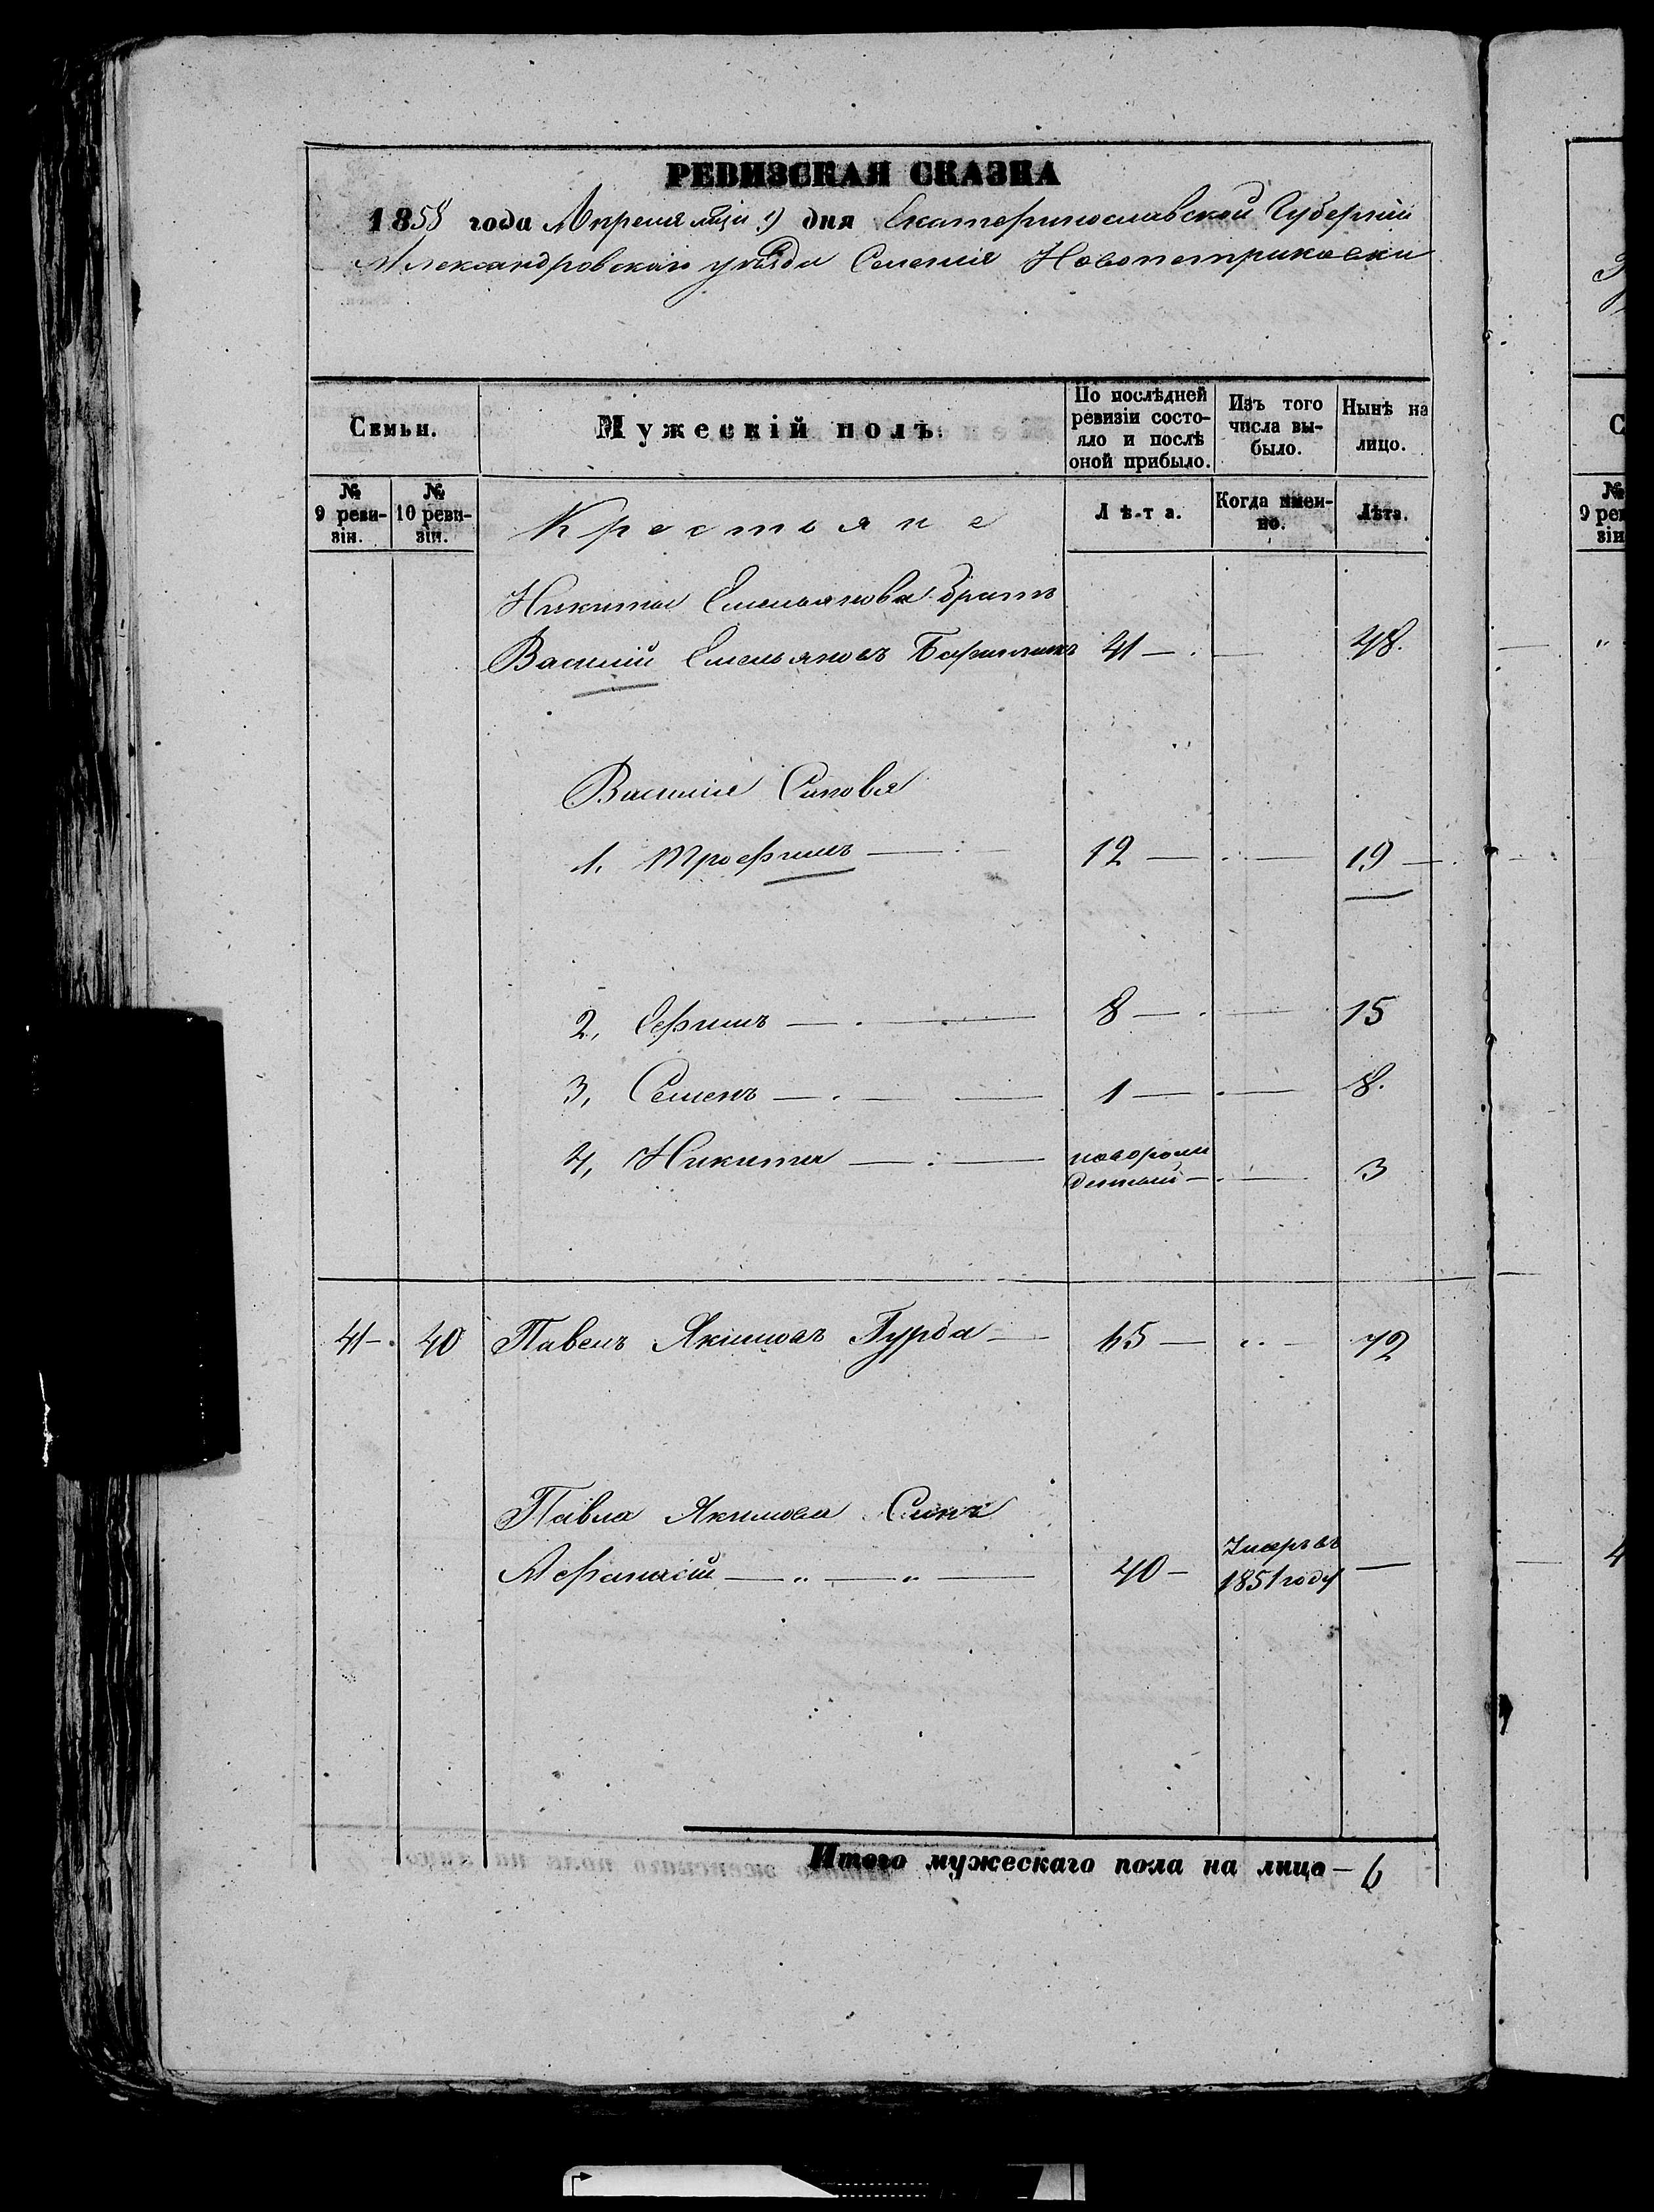 РЕВИЗСКАЯ СКАЗКА
1858 года Апреля дня Екатеринославской Губерніи
Александровскаго уѣзда Селенія Новопетриковки
Семьи.
Мужескій полъ.
По послѣдней ревизіи состо-
яло и послѣ оной прибыло.
Изъ того числа вы-
было.
Нынѣ на лицо.
№ 9 реви-
зіи.
№ 10 реви-
зіи.
Крестьяне
Лѣта.
Когда имен-
но.
Лѣта.
Никиты Емельянова братъ
Василій Емельяновъ 41 — 48.
Василія Сыновья
1. Трофимъ — 12 — 19 —
2, Ефимъ — 8 — 15
3, Семенъ — 1 — 8.
4, Никита — новорож
денный — 3
41 — 40 Павелъ Якимовъ Гурда — 65 — 72
Павла Якимова Сынъ
Афанасій — 40 — Умеръ въ
1851 году —
Итого мужескаго пола на лицо — 6
С
№
9 рев
зін
4